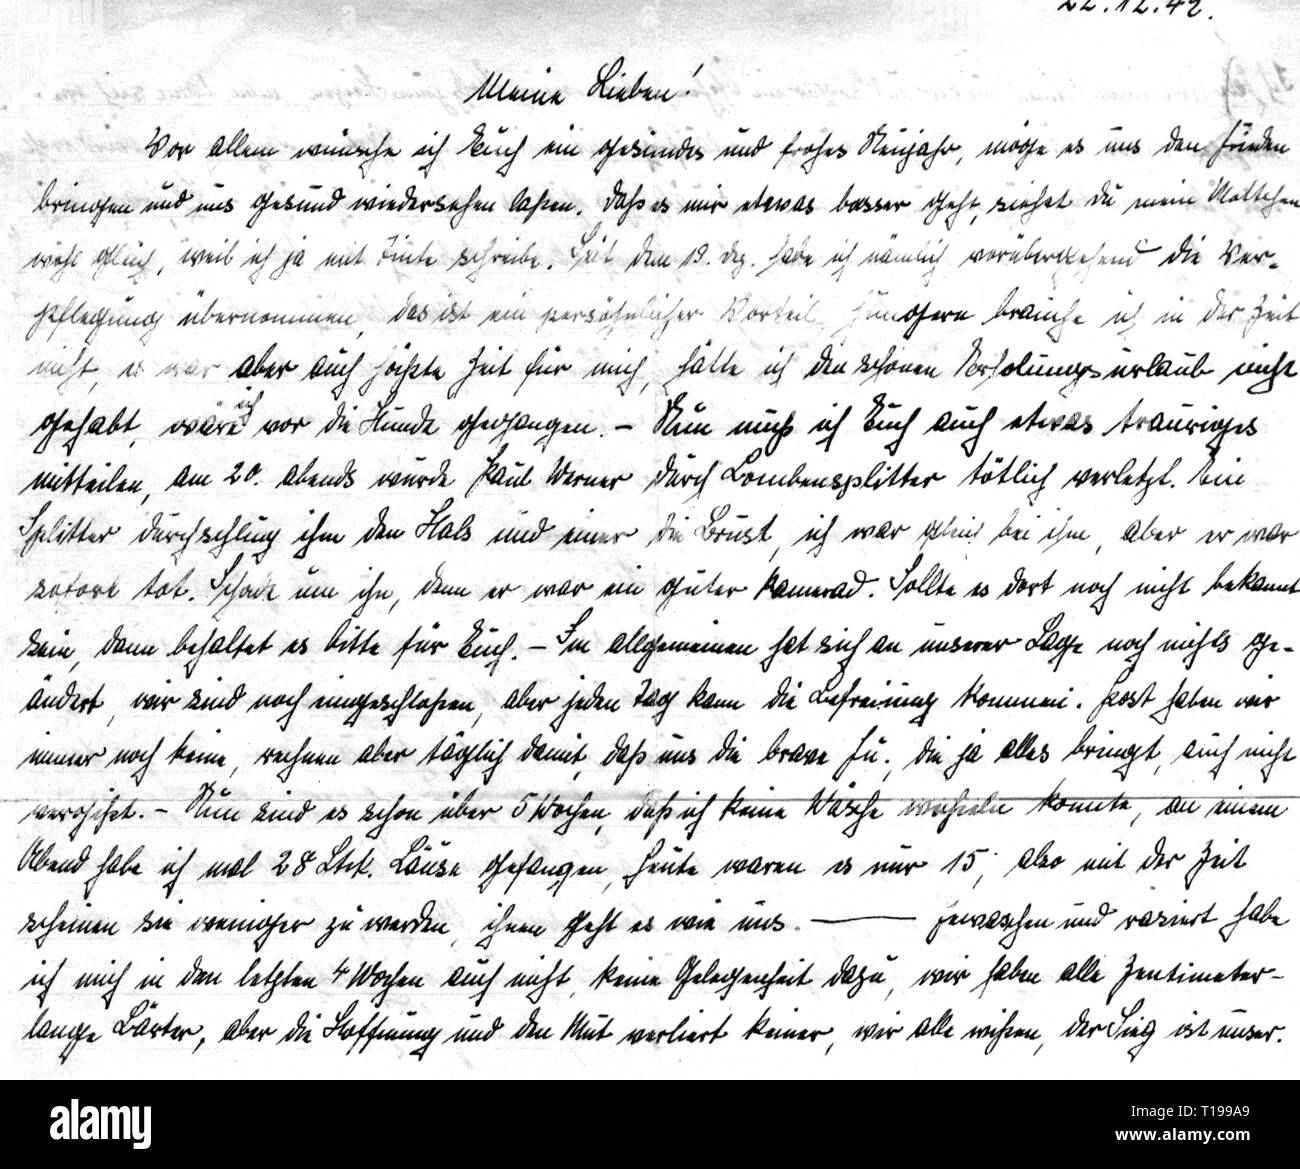 22.12.42.
Meine Lieben!
Vor allem wünsche ich Euch ein gesundes und frohes Neujahr, möge es uns den Frieden
bringen und uns gesund wiedersehen laßen. Daß es mir etwas besser geht, siehst du mein Mattchen
wohl gleich, weil ich ja mit Tinte schreibe. Seit dem 19. Dez. habe ich nämlich vorübergehend die Ver-
pflegung übernommen, das ist ein persöhnlicher Vorteil, hungern brauche ich in der Zeit
nicht, es war aber auch höchste Zeit für mich, hätte ich den schönen Erholungsurlaub nicht
gehabt, wäre ich vor die Hunde gegangen. – Nun muß ich Euch auch etwas trauriges
mitteilen, am 20. abends wurde Paul Werner durch Bombensplitter tötlich verletzt. Ein
Splitter durchschlug ihm den Hals und einer die Brust, ich war gleich bei ihm, aber er war
sofort tot. Schade um ihn, denn er war ein guter Kamerad. Sollte es dort noch nicht bekannt
sein, dann behaltet es bitte für Euch. – Im allgemeinen hat sich an unserer Lage noch nichts ge-
ändert, wir sind noch eingeschloßen, aber jeden Tag kann die Befreiung kommen. Post haben wir
immer noch keine, rechnen aber täglich damit, daß uns die brave Ju., die ja alles bringt, auch nicht
vergißt. – Nun sind es schon über 5 Wochen, daß ich keine Wäsche wechseln konnte, an einem
Abend habe ich mal 28 Stck. Läuse gefangen, heute waren es nur 15, also mit der Zeit
scheinen sie weniger zu werden, ihnen geht es wie uns. — Gewaschen und rasiert habe
ich mich in den letzten 4 Wochen auch nicht, keine Gelegenheit dazu, wir haben alle Zentimeter-
lange Bärter, aber die Hoffnung und den Mut verliert keiner, wir alle wißen, der Sieg ist unser.
alamy
Image ID: T199A9
www.alamy.com